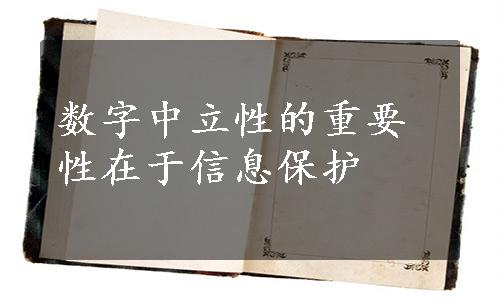 数字中立性的重要
性在于信息保护